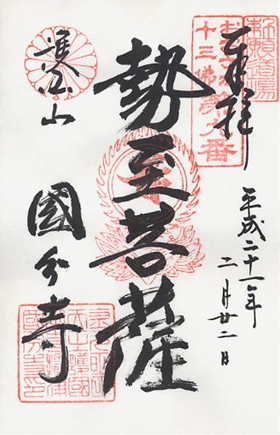 奉拝
平成二十一年
二月廿二日
十三佛第九番
勢至菩薩
護国山
國分寺